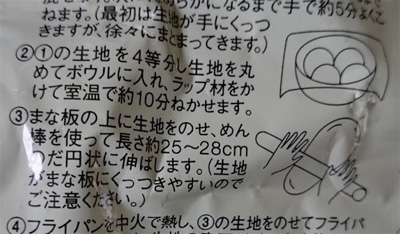 らかになるまで手で約5分よくこ
ねます。（最初は生地が手にくっつ
きますが、徐々にまとまってきます。）
②①の生地を4等分し生地を丸
めてボウルに入れ、ラップ材をか
けて室温で約10分ねかせます。
③まな板の上に生地をのせ、めん
棒を使って長さ約25～28cm
のだ円状に伸ばします。（生地
がまな板にくっつきやすいので
ご注意ください。）
④フライパンを中火で熱し、③の生地をのせてフライパ